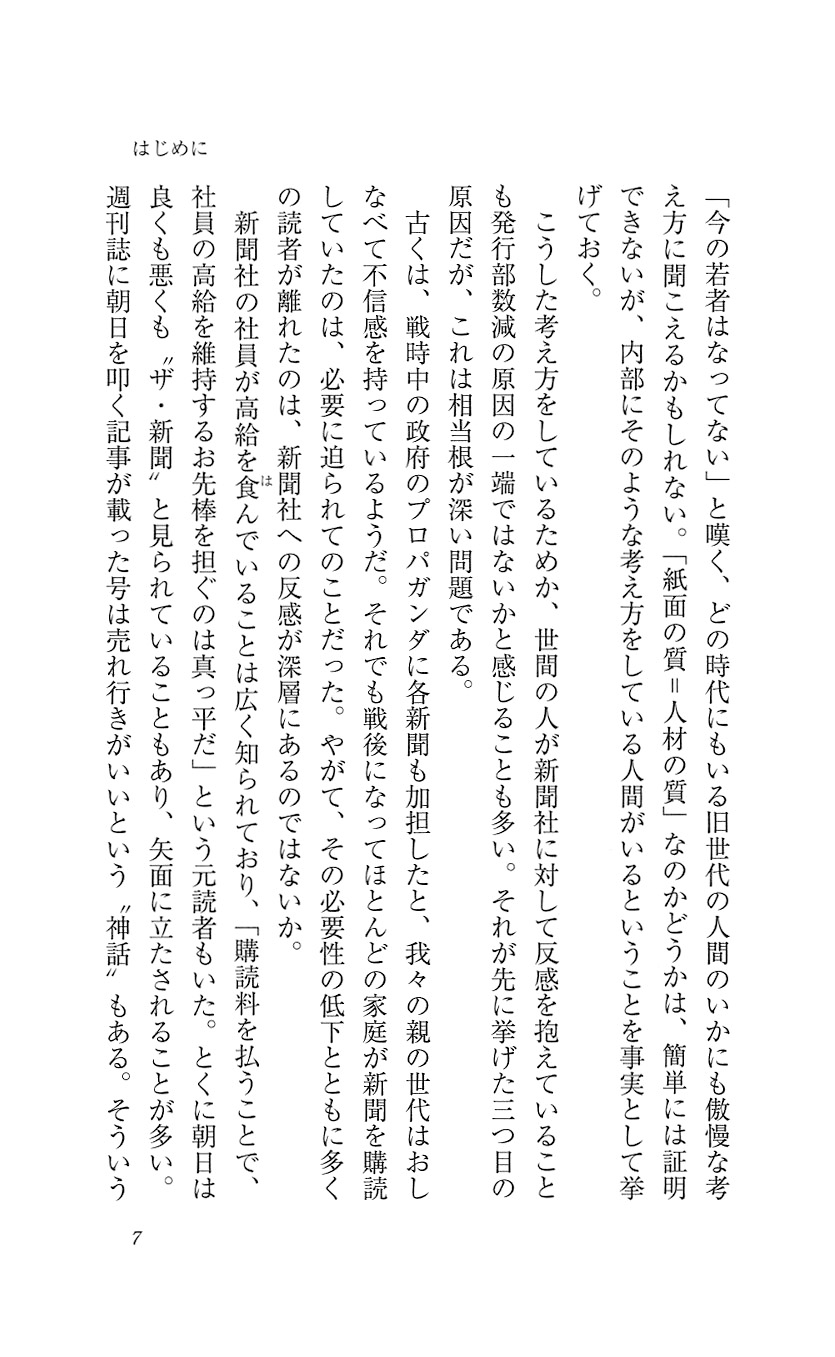 はじめに
「今の若者はなってない」と嘆く、どの時代にもいる旧世代の人間のいかにも傲慢な考
え方に聞こえるかもしれない。「紙面の質＝人材の質」なのかどうかは、簡単には証明
できないが、内部にそのような考え方をしている人間がいるということを事実として挙
げておく。
こうした考え方をしているためか、世間の人が新聞社に対して反感を抱えていること
も発行部数減の原因の一端ではないかと感じることも多い。それが先に挙げた三つ目の
原因だが、これは相当根が深い問題である。
古くは、戦時中の政府のプロパガンダに各新聞も加担したと、我々の親の世代はおし
なべて不信感を持っているようだ。それでも戦後になってほとんどの家庭が新聞を購読
していたのは、必要に迫られてのことだった。やがて、その必要性の低下とともに多く
の読者が離れたのは、新聞社への反感が深層にあるのではないか。
新聞社の社員が高給を食んでいることは広く知られており、「購読料を払うことで、
は
社員の高給を維持するお先棒を担ぐのは真っ平だ」という元読者もいた。とくに朝日は
良くも悪くも〝ザ・新聞〟と見られていることもあり、矢面に立たされることが多い。
週刊誌に朝日を叩く記事が載った号は売れ行きがいいという〝神話〟もある。そういう
7